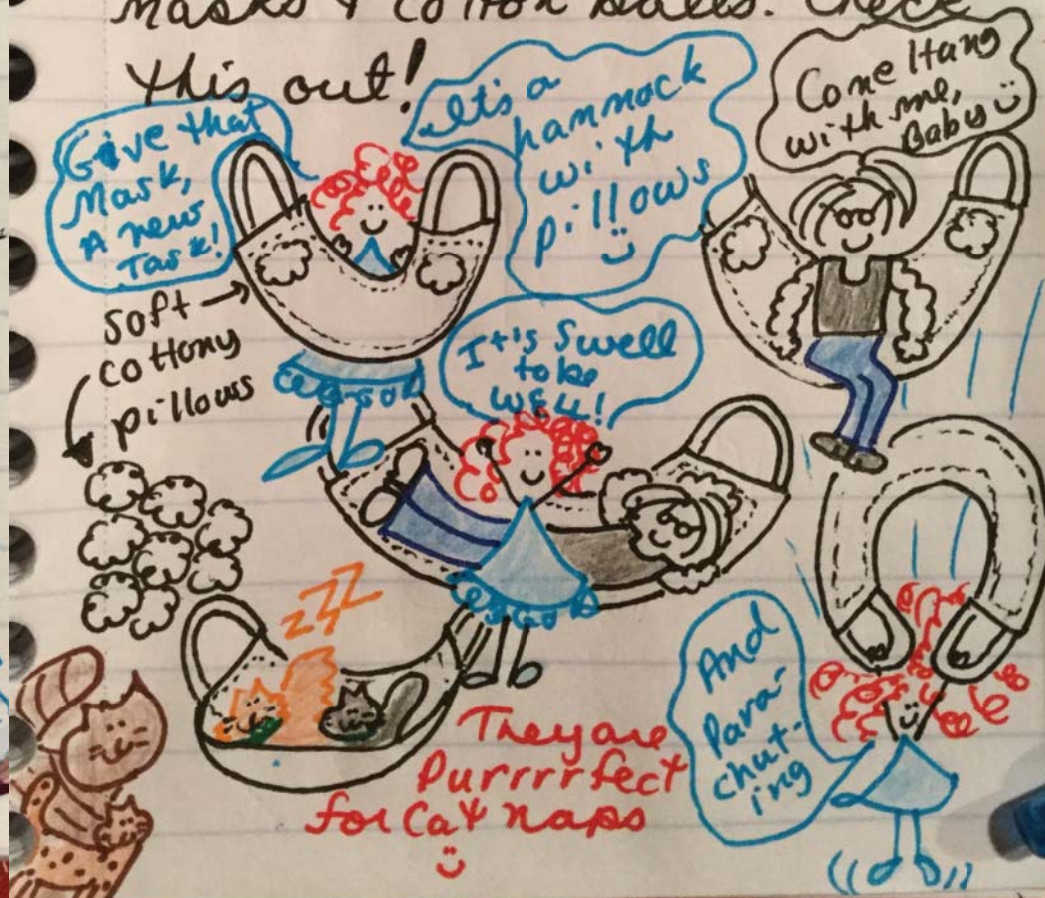 Masks & Cotton Balls. Check
this out!
Give that
Mask,
A new
Task!
It's a
hammock
with
pillows
Come Hang
with me,
Baby
soft
cottony
pillows
It's Swell
to be
WELL!
ZZZ
They are
Purrrrfect
for Cat naps
And
Para-
chut-
ing